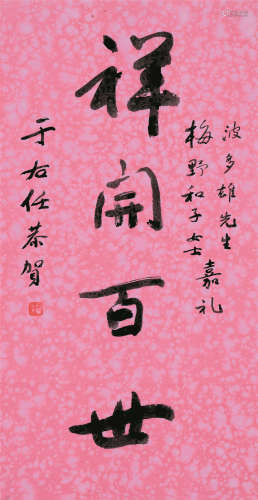 波多雄先生
梅野和子女士嘉礼
祥開百世
于右任恭賀